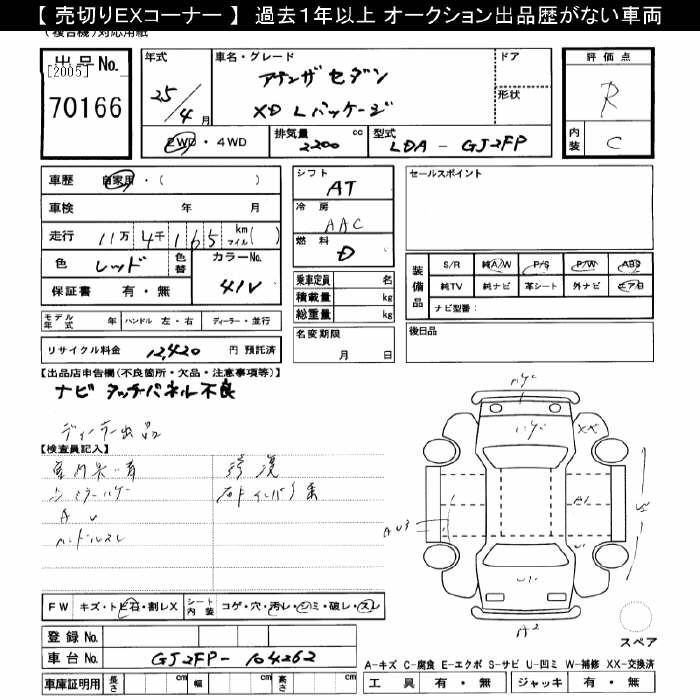 【 売切りEXコーナー 】 過去１年以上 オークション出品歴がない車両
(複合機)対応用紙
出品No.
[2005]
70166
年式
25/4月
車名・グレード
アテンザ セダン
XD Lパッケージ
ドア
形状
評価点
R
内装
C
2WD・4WD
排気量
2200 cc
型式
LDA - GJ2FP
車歴 自家用・( )
車検 年 月
走行 11万 4千 165 km マイル( )
色 レッド 色替 カラーNo. 41V
保証書 有・無
シフト
AT
冷房
AAC
燃料
D
乗車定員 名
積載量 kg
総重量 kg
名変期限
月 日
セールスポイント
装備品
S/R 純A/W P/S P/W ABS
純TV 純ナビ 革シート 外ナビ エアB
ナビ型番:
後日品
モデル年式 年 ハンドル 左・右 ディーラー・並行
リサイクル料金 12,420 円 預託済
【出品店申告欄(不良箇所・欠品・注意事項等)】
ナビ タッチパネル不良
ディーラー出品
【検査員記入】
ハンドルスレ
A U3
A1
A2
XX
FW キズ・トビ石・割レX シート内装 コゲ・穴・汚レ・シミ・破レ・スレ
登録No.
車台No. GJ2FP- 104262
車庫証明用 長さ cm 幅 cm 高さ cm
スペア
A-キズ C-腐食 E-エクボ S-サビ U-凹ミ W-補修 XX-交換済
工具 有・無 ジャッキ 有・無